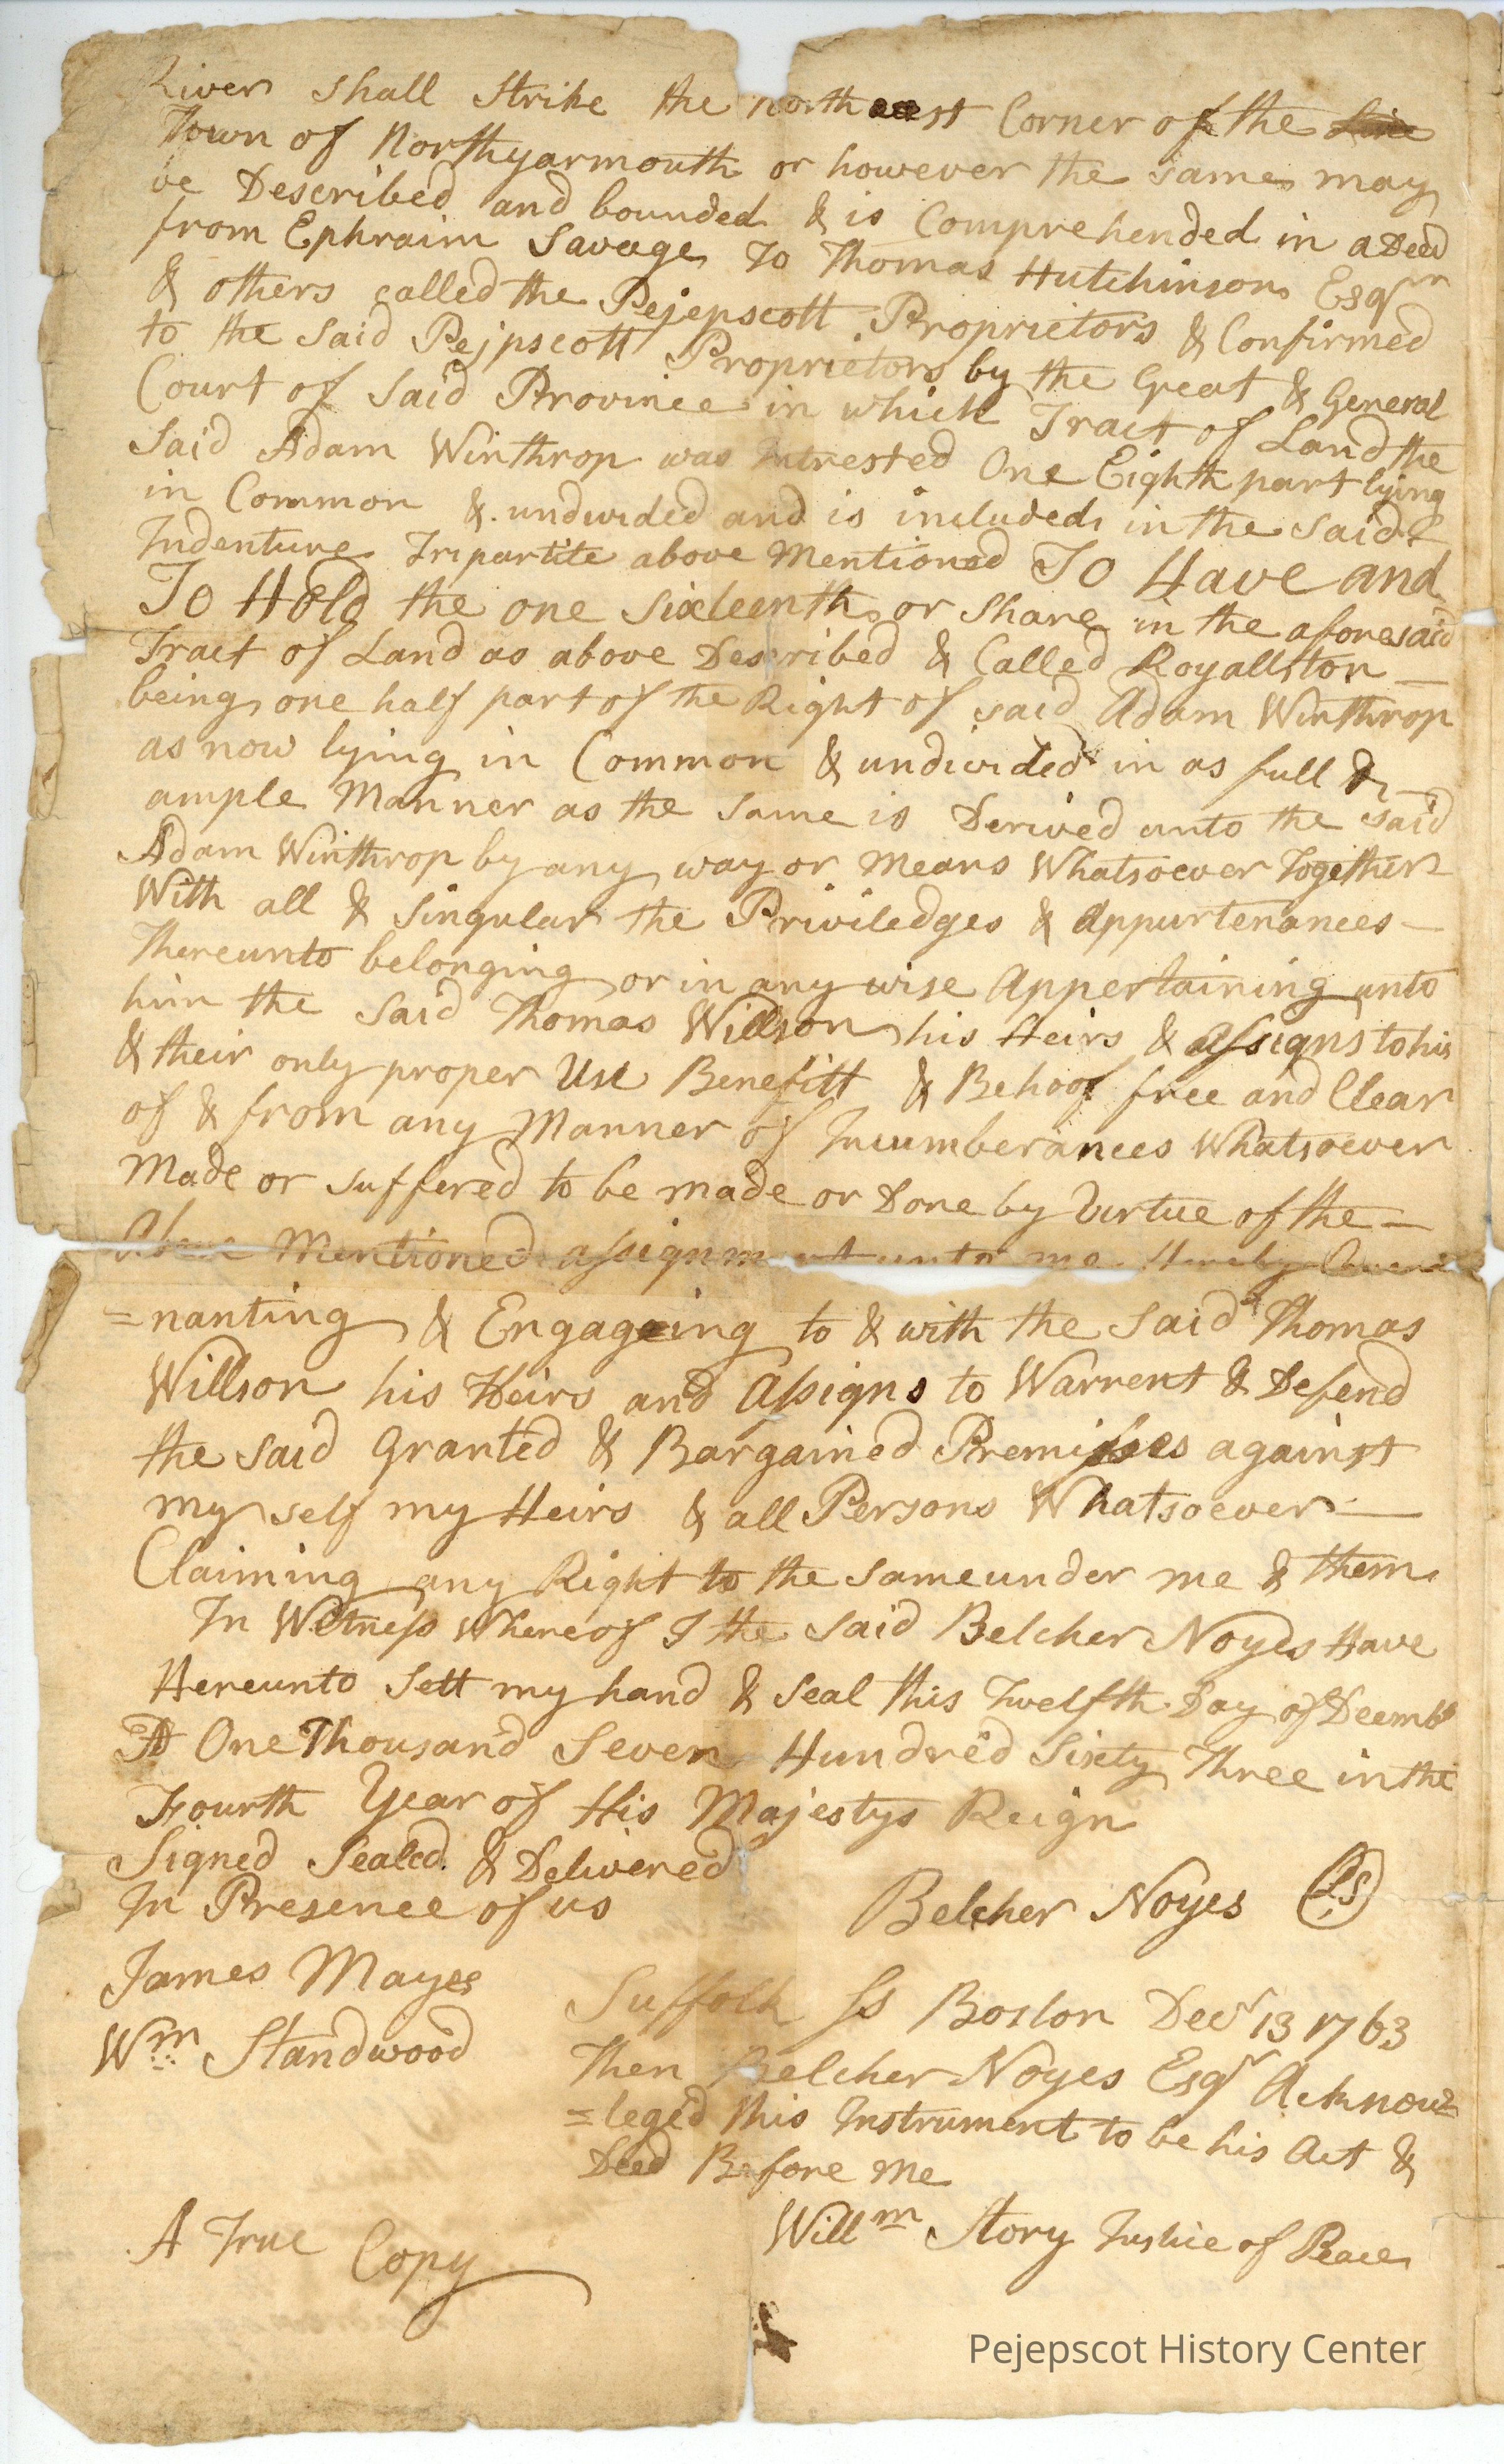 River shall Strike the northeast Corner of the Line
Town of Northyarmouth or however the same may
be Described and bounded & is Comprehended in a Deed
from Ephraim Savage To Thomas Hutchinson Esqr
& others called the Pejepscott Proprietors & Confirmed
to the said Pejpscott Proprietors by the Great & General
Court of said Province in which Tract of Land the
said Adam Winthrop was Intrested One Eighth part lying
in Common & undivided and is included in the said
Indenture Tripartite above Mentioned To Have and
To Hold the one Sixteenth or share in the aforesaid
Tract of Land as above Described & Called Royallston
being one half part of the Right of said Adam Winthrop
as now lying in Common & undivided in as full &
ample Manner as the same is Derived unto the said
Adam Winthrop by any way or Means Whatsoever Together
With all & Singular the Priviledges & Appurtenances —
Thereunto belonging or in any wise Appertaining unto
him the said Thomas Willson his Heirs & Assigns to his
& their only proper Use Benefitt & Behoof free and Clear
of & from any Manner of Incumberances Whatsoever
Made or suffered to be made or Done by Virtue of the —
Above Mentioned assignment unto me Hereby Cove
=nanting & Engageing to & with the said Thomas
Willson his Heirs and Assigns to Warrent & Defend
the said Granted & Bargained Premisses against
my self my Heirs & all Persons Whatsoever —
Claiming any Right to the same under me & them
In Witness Whereof I the said Belcher Noyes Have
Hereunto Sett my hand & Seal this Twelfth Day of Decembr
AD One Thousand Seven Hundred Sixty Three in the
Fourth Year of His Majestys Reign
Signed Sealed & Delivered
In Presence of us
Belcher Noyes LS
James Mayes
Wm Standwood
Suffolk Ss Boston Decr 13 1763
Then Belcher Noyes Esqr Acknow=
=leged this Instrument to be his Act &
Deed Before Me
Willm Story Justice of Peace
A True Copy
Pejepscot History Center